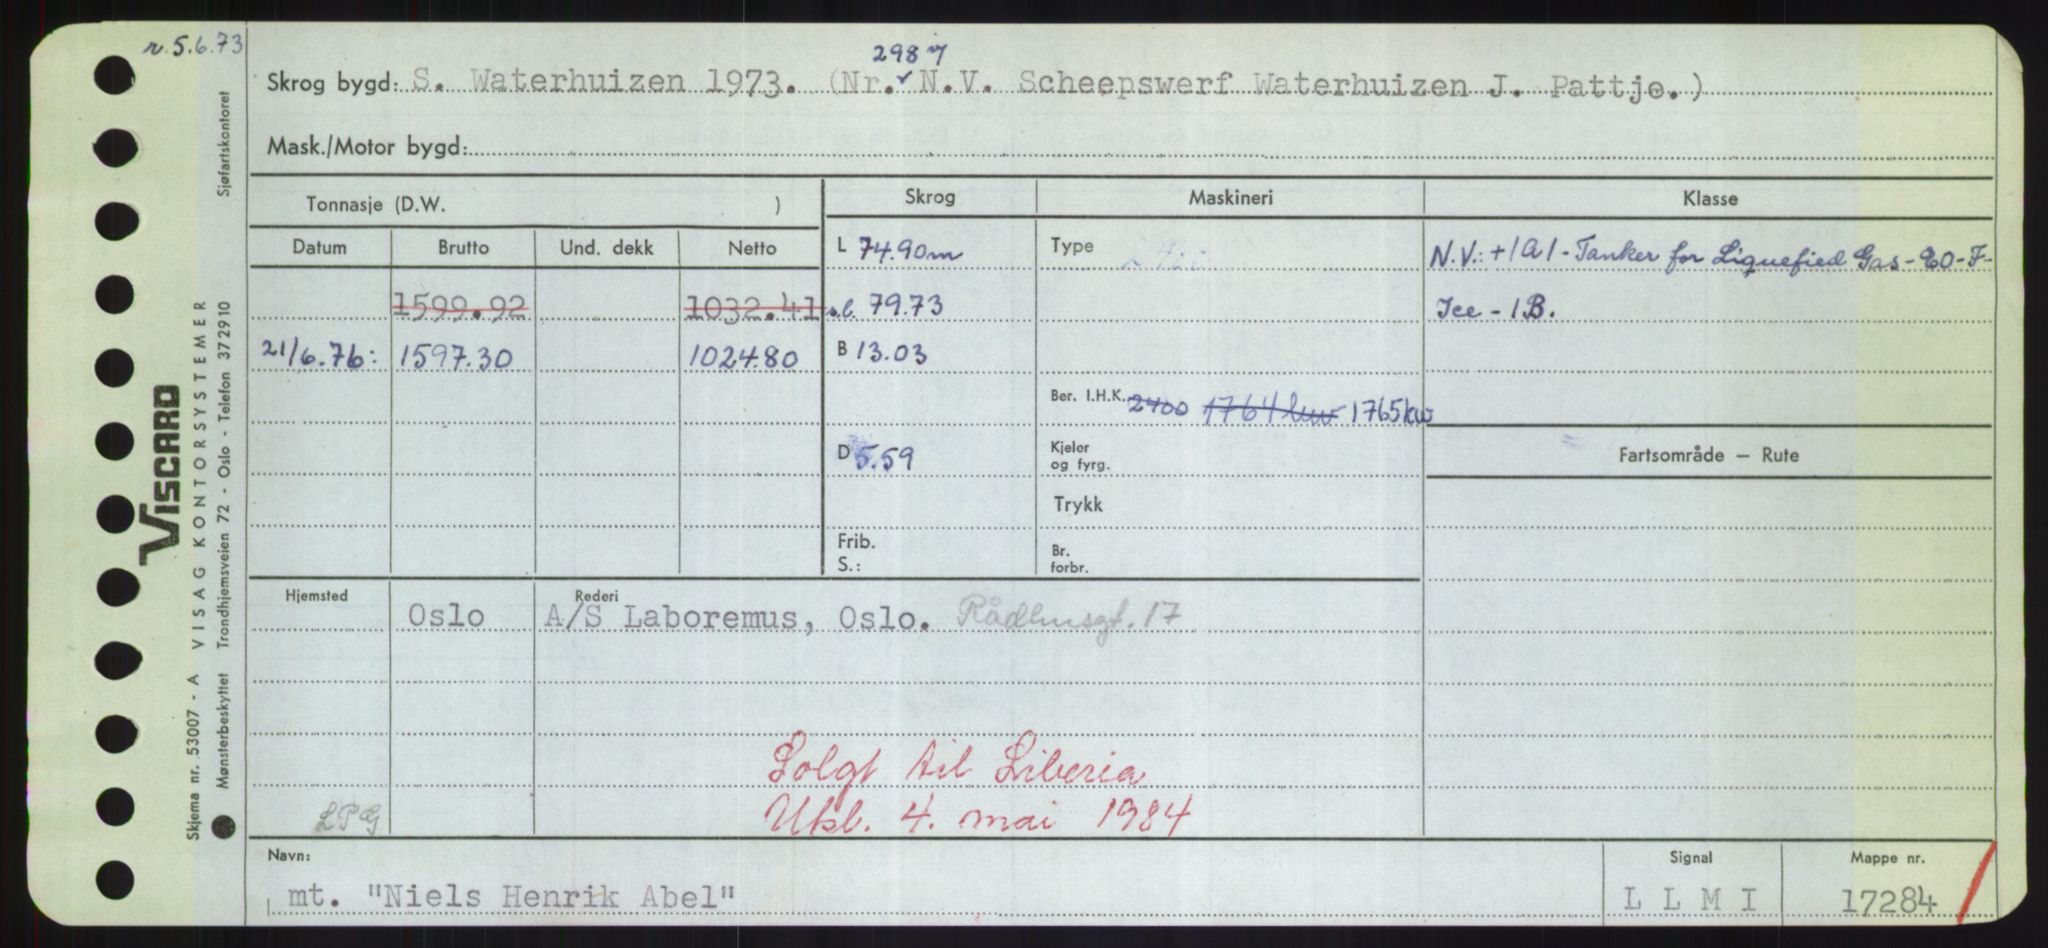 r. 5.6.73
298
Skrog bygd: S. Waterhuizen 1973. (Nr. N.V. Scheepswerf Waterhuizen J. Pattje.)
Mask./Motor bygd:
Tonnasje (D.W. )
Skrog
Maskineri
Klasse
Datum Brutto Und. dekk Netto
L 74.90m
Type
N.V.: +1A1 - Tanker for Liquefied Gas - E0 - F-
1599.92 1032.41
s.l. 79.73
Ice - 1B.
21/6.76: 1597.30 1024.80
B 13.03
Ber. I.H.K. 2400 1764 kw 1765 kw
D 5.59
Kjeler
og fyrg.
Fartsområde – Rute
Trykk
Frib.
S.:
Br.
forbr.
Hjemsted
Rederi
Oslo A/S Laboremus, Oslo. Rådhusgt. 17
Solgt til Liberia
LPG
Ukl. 4. mai 1984
Navn:
mt. "Niels Henrik Abel"
Signal
L L M I
Mappe nr.
17284
VISCARD
Skjema nr. 53007 - A VISAG KONTORSYSTEMER
Mønsterbeskyttet Trondhjemsveien 72 - Oslo - Telefon 37 29 10 Sjøfartskontoret